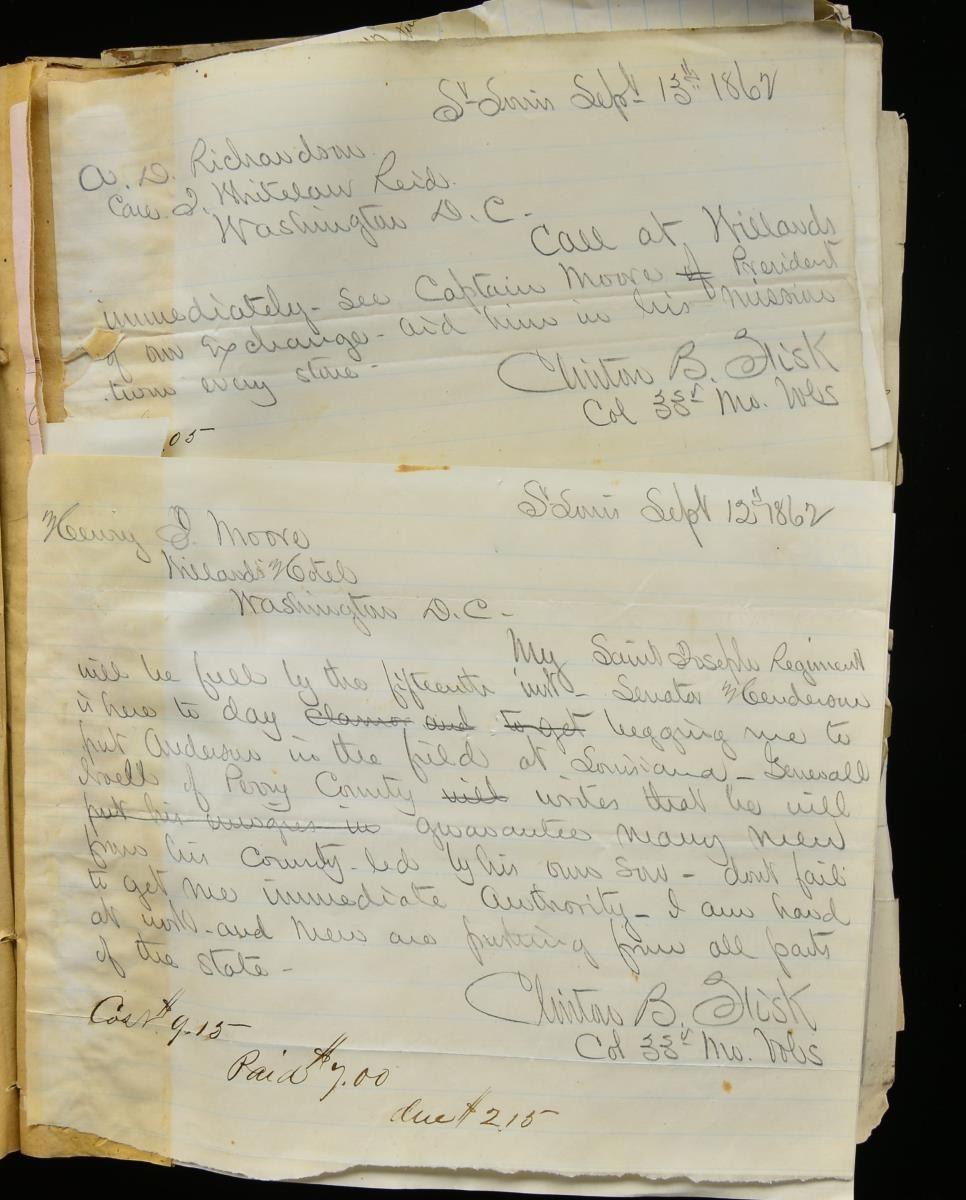 St Louis Sept 13th 1862
A. D. Richardson
Care J. Whitelaw Reid.
Washington D. C.
Call at Willards
immediately - see Captain Moore of President
of our Exchange - aid him in his mission
turn every stone -
Clinton B. Fisk
Col 33rd Mo. Vols
.05
St Louis Sept 12th 1862
Henry J. Moore
Willards Hotel
Washington D. C. -
My Saint Joseph Regiment
will be full by the fifteenth inst - Senator Henderson
is here to day clamor and to get begging me to
put Anderson in the field at Louisiana - Generall
of Perry County will writes that he will
put his in guarantee many men
from his County - led by his own Son - don't fail
to get me immediate Authority - I am hard
at work - and Men are from all parts
of the state -
Clinton B. Fisk
Col 33rd Mo. Vols
Cost $9.15
Paid $7.00
due $2.15